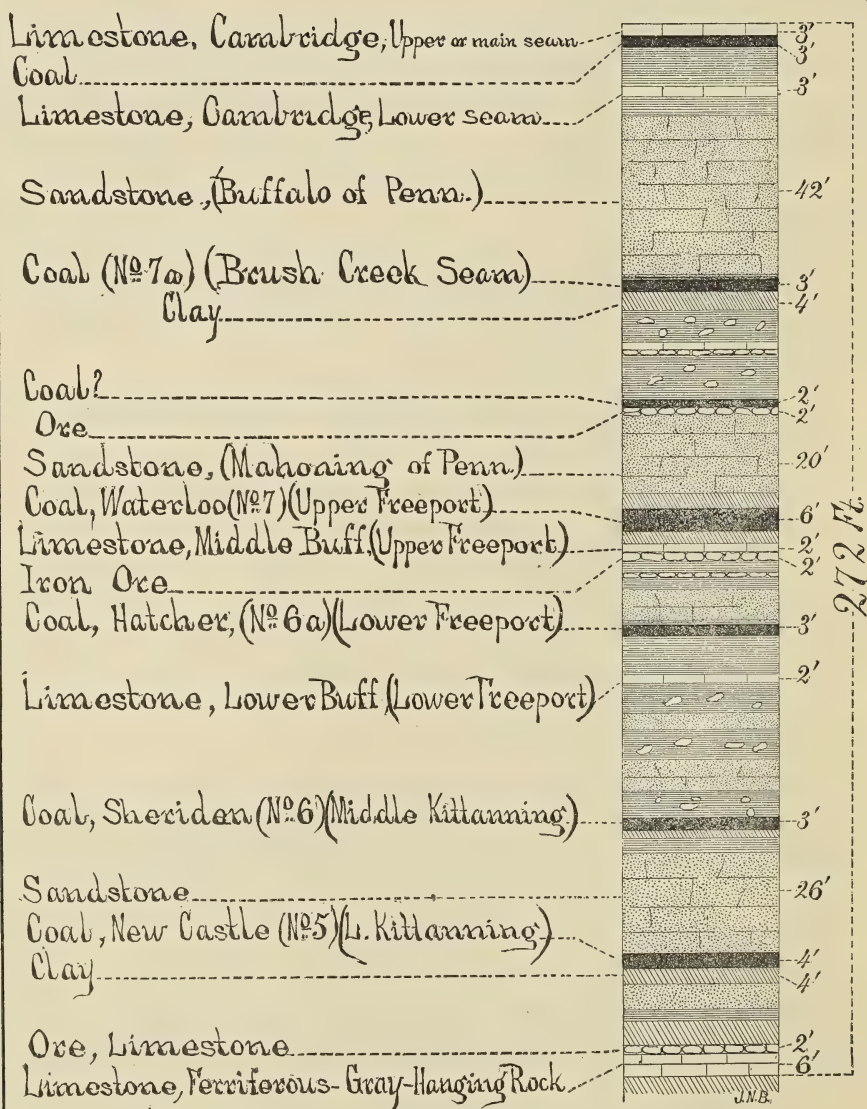 Limestone, Cambridge, Upper or main seam 3'
Coal 3'
Limestone, Cambridge, Lower seam 3'
Sandstone, (Buffalo of Penn.) 42'
Coal (Nº 7a) (Brush Creek Seam) 3'
Clay 4'
Coal? 2'
Ore 2'
Sandstone, (Mahoning of Penn.) 20'
Coal, Waterloo (Nº 7) (Upper Freeport) 6'
Limestone, Middle Buff, (Upper Freeport) 2'
Iron Ore 2'
Coal, Hatcher, (Nº 6a) (Lower Freeport) 3'
Limestone, Lower Buff (Lower Freeport) 2'
Coal, Sheriden (Nº 6) (Middle Kittanning) 3'
Sandstone 26'
Coal, New Castle (Nº 5) (L. Kittanning) 4'
Clay 4'
Ore, Limestone 2'
Limestone, Ferriferous-Gray-Hanging Rock 6'
272 Ft.
J.N.B.